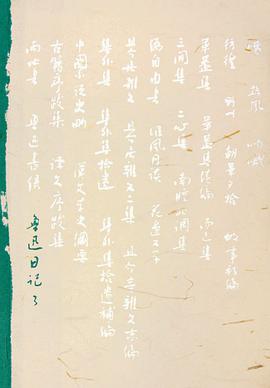 坟 热风 呐喊
彷徨 野草 朝花夕拾 故事新编
华盖集 华盖集续编 而已集
三闲集 二心集 南腔北调集
伪自由书 准风月谈 花边文学
且介亭杂文 且介亭杂文二集 且介亭杂文末编
集外集 集外集拾遗 集外集拾遗补编
中国小说史略 汉文学史纲要
古籍序跋集 译文序跋集
两地书 鲁迅书信
鲁迅日记